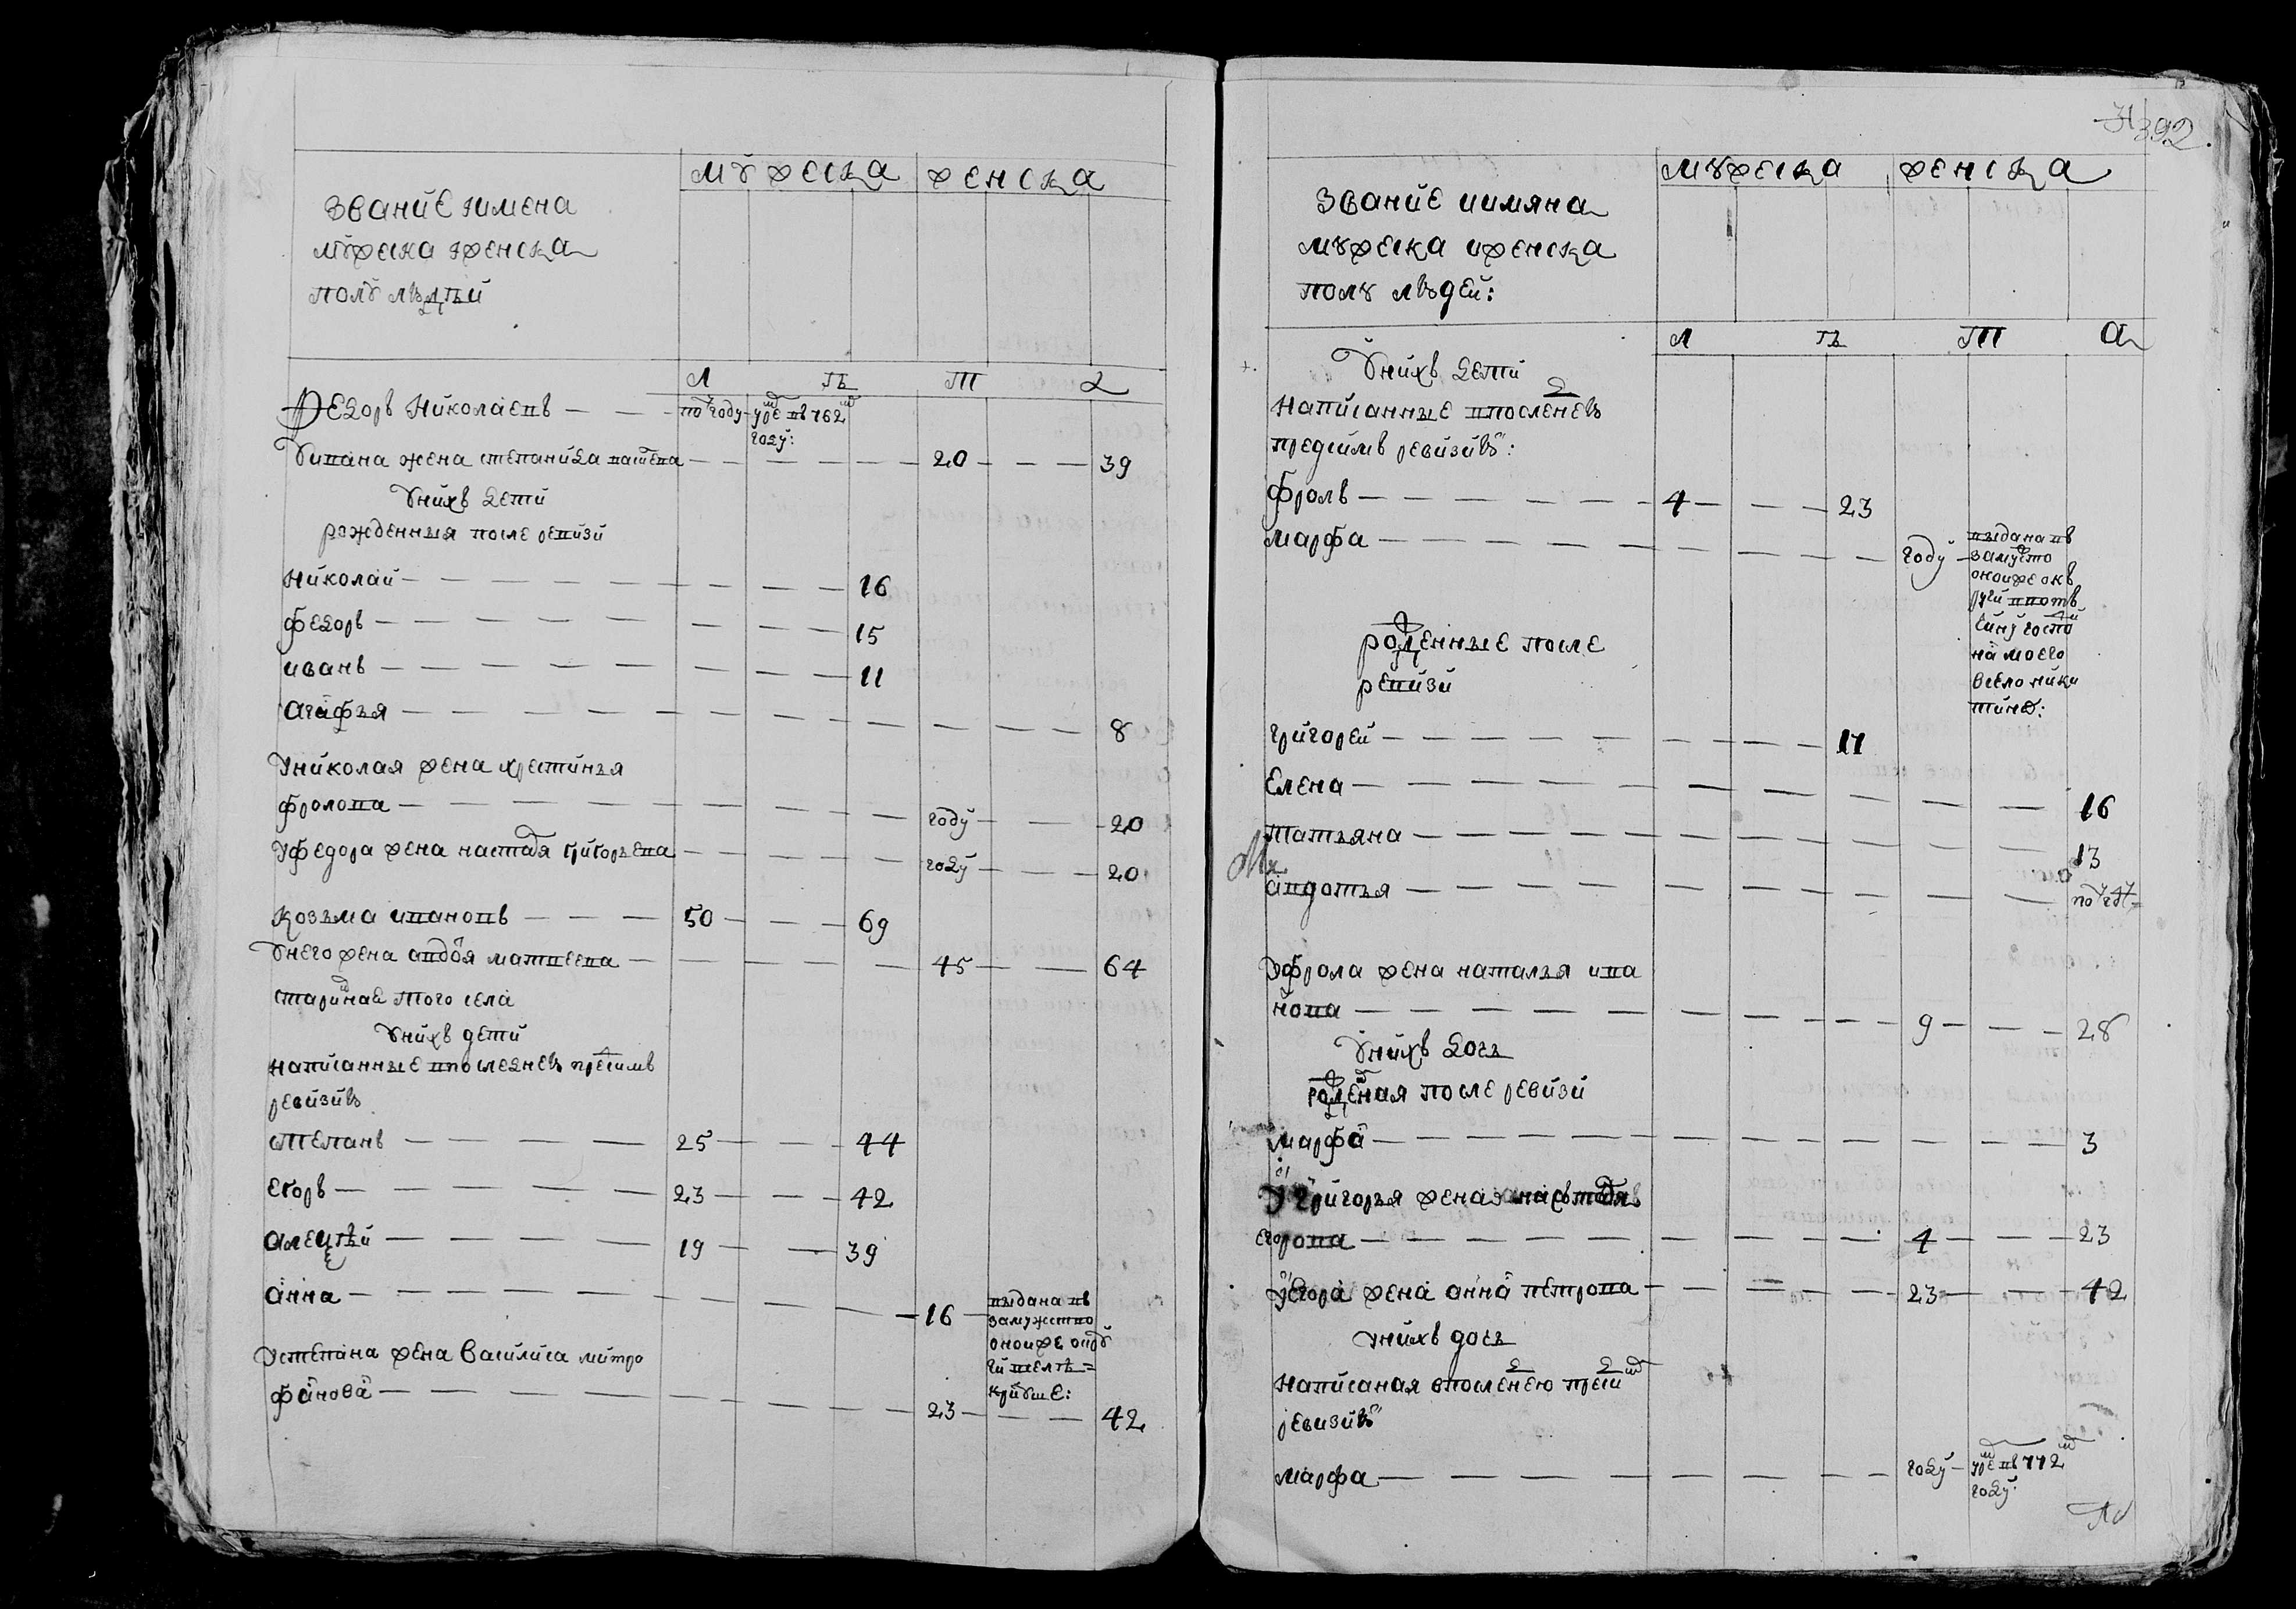 мужеска женска
звание и имена
мужеска и женска
полу людей
л ѣ т а
Федоръ николаевъ — — — по году — умре въ 762
году:
У ивана жена степанида матвева — — — — — 20 — — — 39
У нихъ дети
рожденныя после ревизи
николай — — — — — — — — 16
федоръ — — — — — — — — 15
иванъ — — — — — — — — 11
агафья — — — — — — — — — — — 8
У николая жена хрестинья
фролова — — — — — — — году — — — 20
У федора жена настасья григорьева — — — — году — — 20
козьма ивановъ — — — 50 — — — 69
У него жена авдотья матвеева — — — — — 45 — — — 64
старинная того села
У нихъ дети
написанные в последнею пред симъ
ревизию
степанъ — — — — 25 — — — 44
егоръ — — — — — 23 — — — 42
алексѣй — — — — 19 — — — 39
анна — — — — — — — — 16 — выдана въ
замужство
оной же окру
ги в селѣ =
кривше:
У степана жена василиса митро
фанова — — — — — — — — 23 — — — 42
392.
мужеска женска
звание и имяна
мужеска и женска
полу людей:
л ѣ т а
У нихъ дети
написанные в последнею
пред симъ ревизию:
фролъ — — — — — — 4 — — — 23
марфа — — — — — — — — — году — выдана въ
замуство
оной же окъ
руги в вотъ
чину госпо
на моего
в село ники
тино:
рожденные после
ревизи
григорей — — — — — — — — 17
елена — — — — — — — — — — — 16
татьяна — — — — — — — — — — — 13
авдотья — — — — — — — — — — — по году
У фрола жена наталья ива
нова — — — — — — — — — 9 — — — 28
У нихъ дочь
рожденная после ревизи
марфа — — — — — — — — — — — 3
У григорья жена настасья
егорова — — — — — — — — 4 — — — 23
У егора жена анна петрова — — — — — 23 — — — 42
У нихъ дочь
написаная в последнею пред сим
ревизию
марфа — — — — — — — — году — умре въ 772
году: